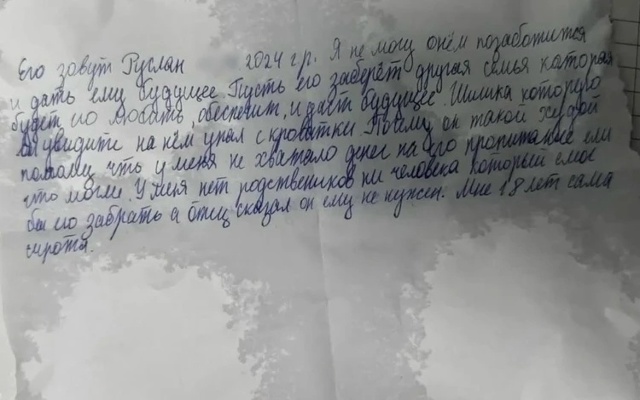 Его зовут Руслан 2024 г р. Я не могу о нём позаботится
и дать ему будущее. Пусть его заберёт другая семья каторая
будет его любить, обеспечит, и даст будущее. Шишка которую
вы увидите на нём упал с кроватки. Почему он такой худой
потому что у меня не хватало денег на его пропитание ели
что могли. У меня нет родствеников ни человека который смог
бы его забрать а отец сказал он ему не нужен. Мне 18 лет сама
сирота.